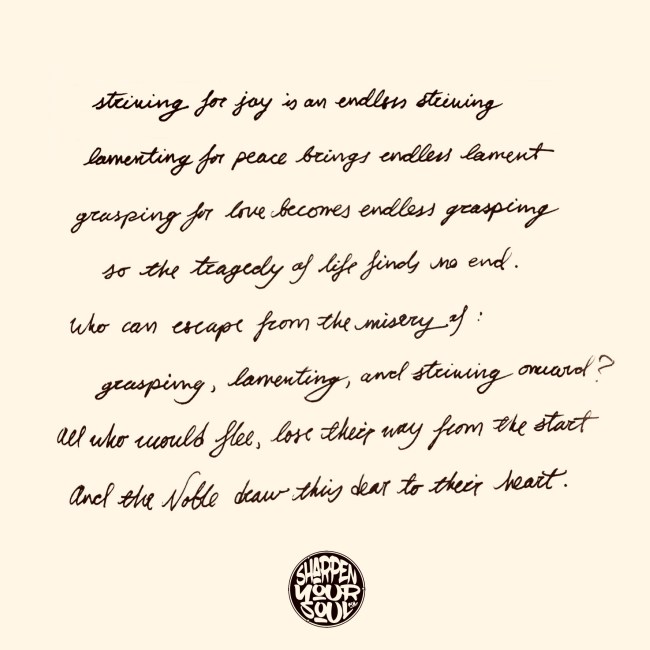 striving for joy is an endless striving
lamenting for peace brings endless lament
grasping for love becomes endless grasping
so the tragedy of life finds no end.
Who can escape from the misery of:
grasping, lamenting, and striving onward?
All who would flee, lose their way from the start
And the Noble draw this dear to their heart.
SHARPEN
YOUR
SOUL